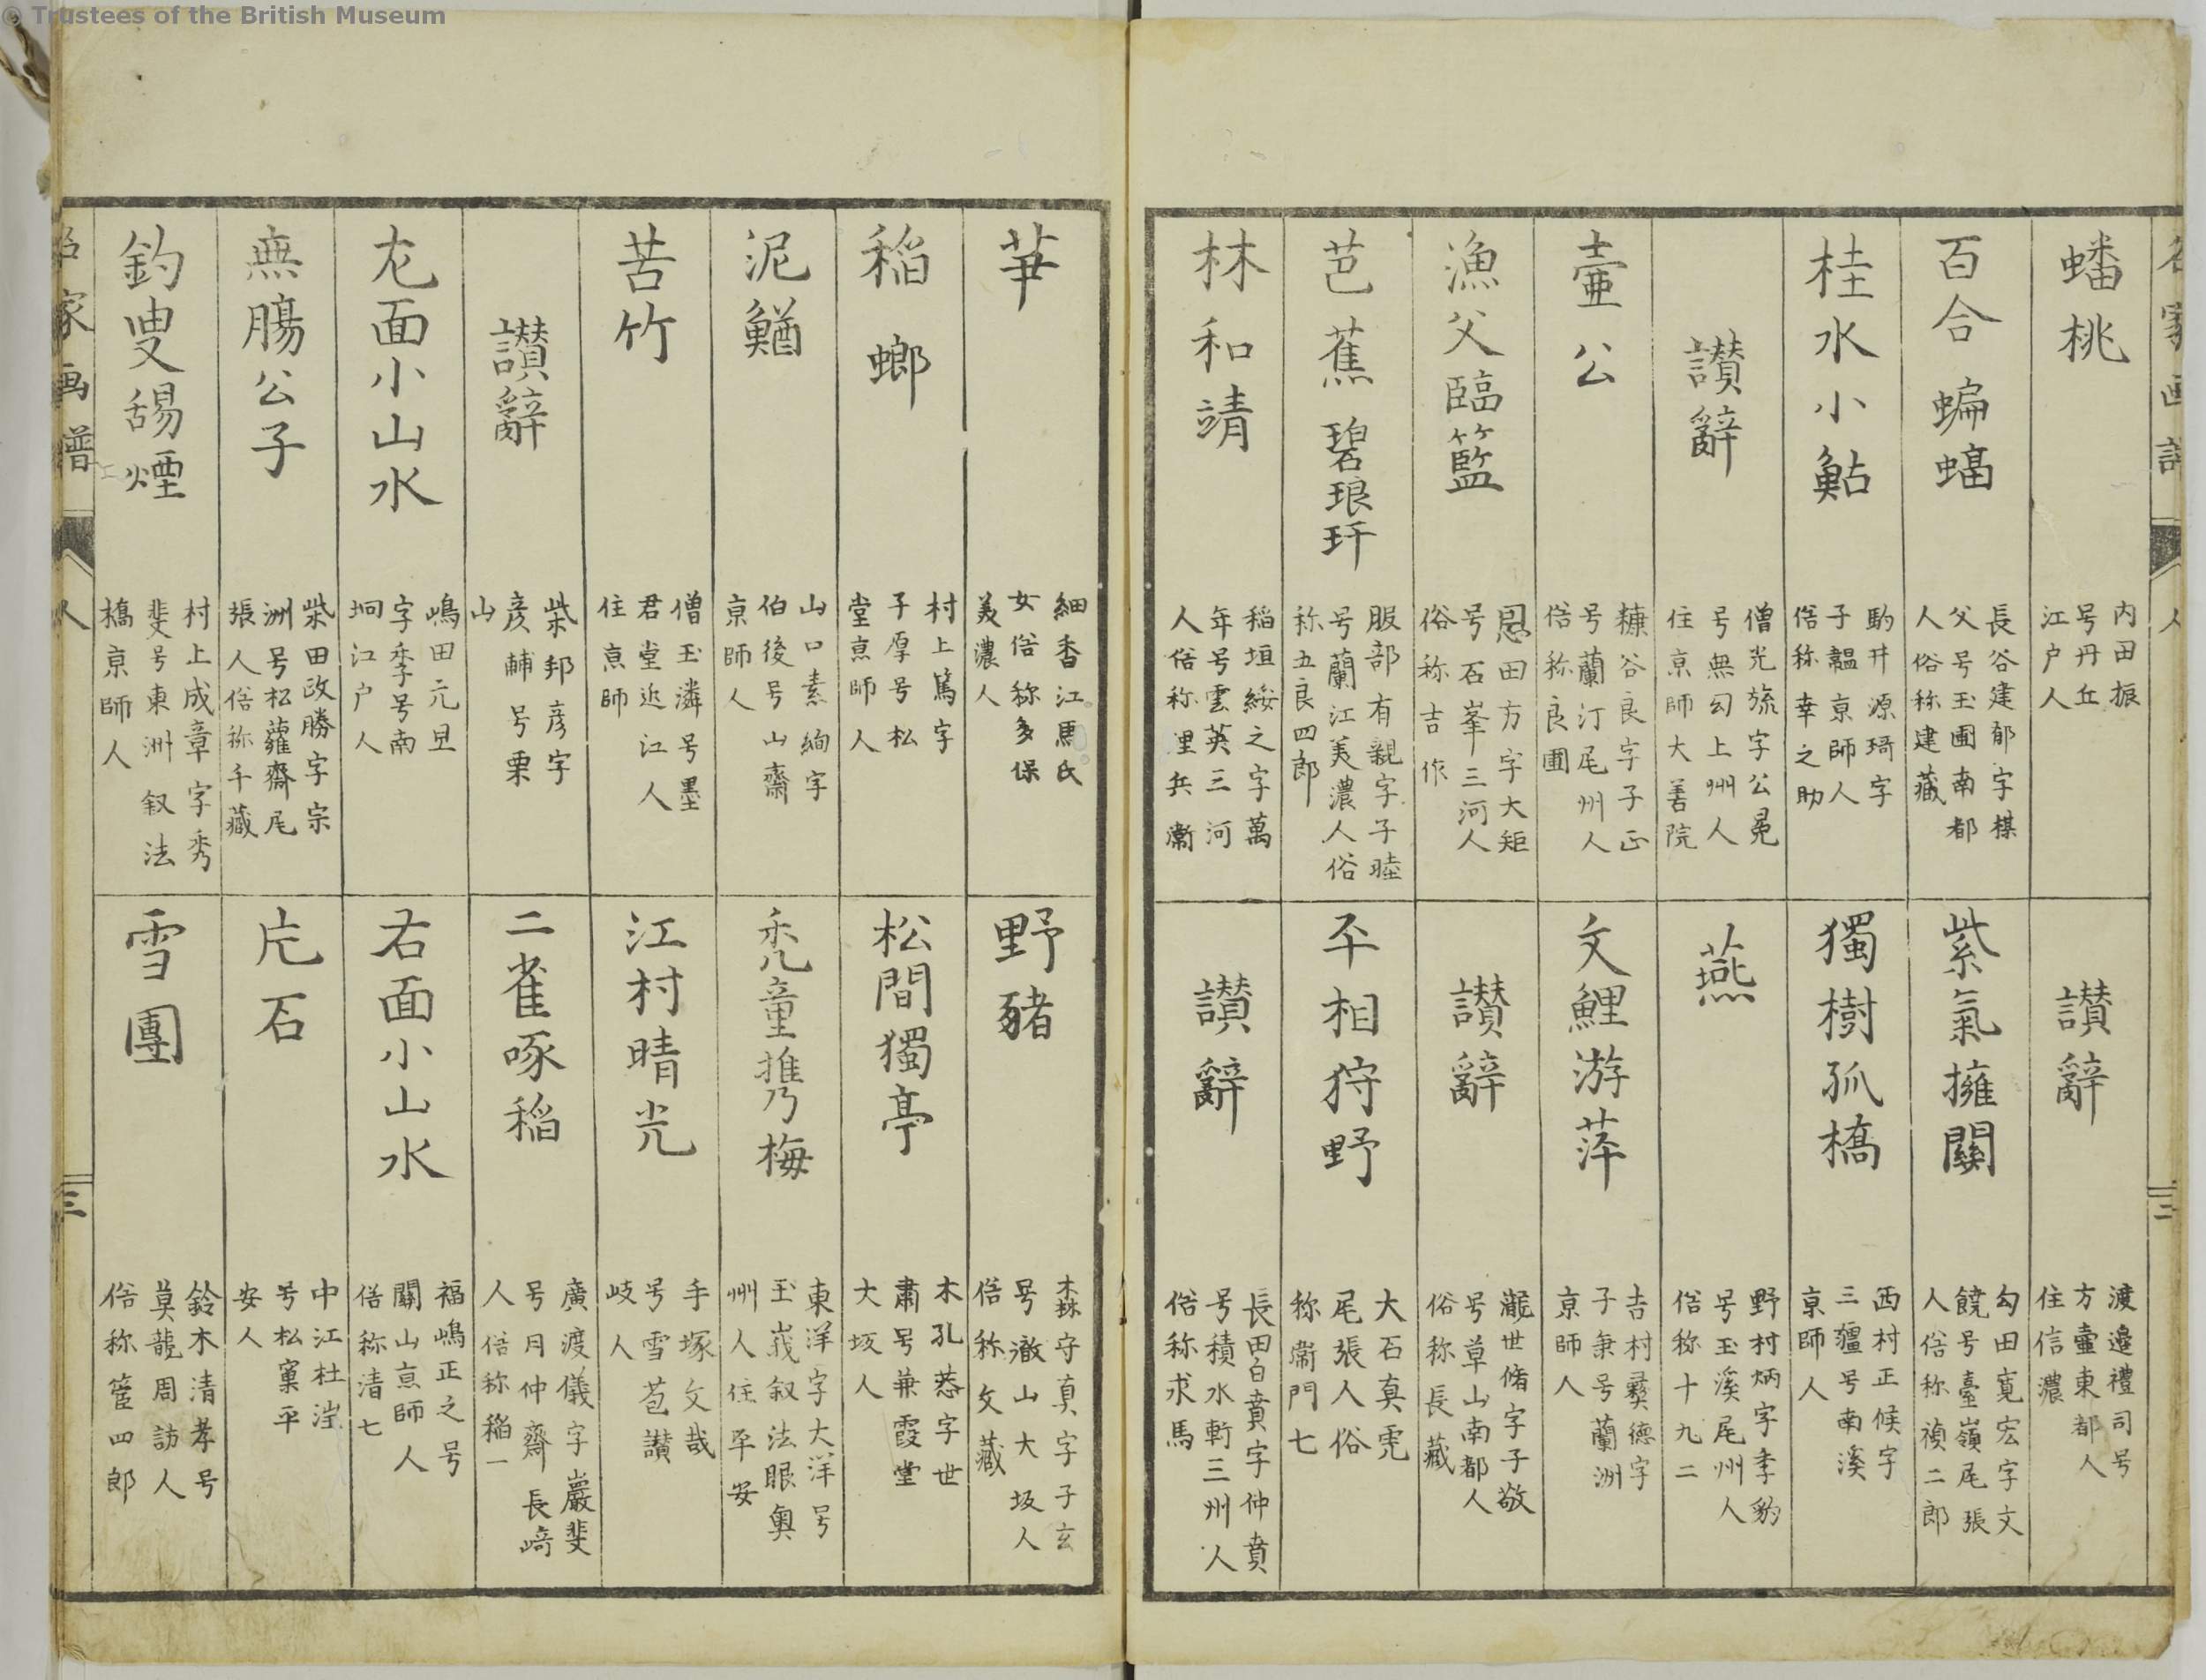 © Trustees of the British Museum
蟠桃
内田振
号丹丘
江户人
讃辭
渡邉禮司号
方壷東都人
住信濃
百合 蝙蝠
長谷建郁字棋
父号玉圃南都
人俗称建藏
紫氣擁關
勾田寛宏字文
饒号臺嶺尾張
人俗称禎二郎
桂水小鮎
駒井源琦字
子韞京師人
俗称幸之助
獨樹孤橋
西村正候字
三疆号南溪
京師人
讃辭
僧光旒字公冕
号無勾上州人
住京師大善院
燕
野村炳字李豹
号玉溪尾州人
俗称十九二
壷公
糠谷良字子正
号蘭汀尾州人
俗称良圃
文鯉游萍
吉村彜德字
子秉号蘭洲
京師人
漁父臨籃
恩田方字大矩
号石峯三河人
俗称吉作
讃辭
瀧世脩字子敬
号草山南都人
俗称長藏
芭蕉 碧琅玕
服部有親字子睦
号蘭江美濃人俗
称五良四郎
平相狩野
大石真虎
尾張人俗
称衛門七
林和靖
稲垣綏之字萬
年号雲英三河
人俗称里兵衛
讃辭
長田白賁字仲賁
号積水軒三州人
俗称求馬
華
細香江馬氏
女俗称多保
美濃人
野豬
森守真字子玄
号澈山大坂人
俗称文藏
稲 螂
村上篤字
子厚号松
堂京師人
松間獨亭
木孔恭字世
肅号兼霞堂
大坂人
泥鰌
山口素絢字
伯後号山齋
京師人
禿童携梅
東洋字大洋号
玉峩叙法眼奥
州人住平安
苦竹
僧玉潾号墨
君堂近江人
住京師
江村晴光
手塚文哉
号雪苞讃
岐人
讃辭
柴邦彦字
彦輔号栗
山
二雀啄稲
廣渡儀字巖斐
号月仲齋長﨑
人俗称稲一
左面小山水
嶋田元旦
字季号南
坰江户人
右面小山水
福嶋正之号
關山京師人
俗称清七
無膓公子
柴田政勝字宗
洲号松蘿齋尾
張人俗称千藏
片石
中江杜澂
号松窠平
安人
釣叟舓煙
村上成章字秀
斐号東洲叙法
橋京師人
雪團
鈴木清孝号
莫龍周訪人
俗称篁四郎
名家画譜
人
三